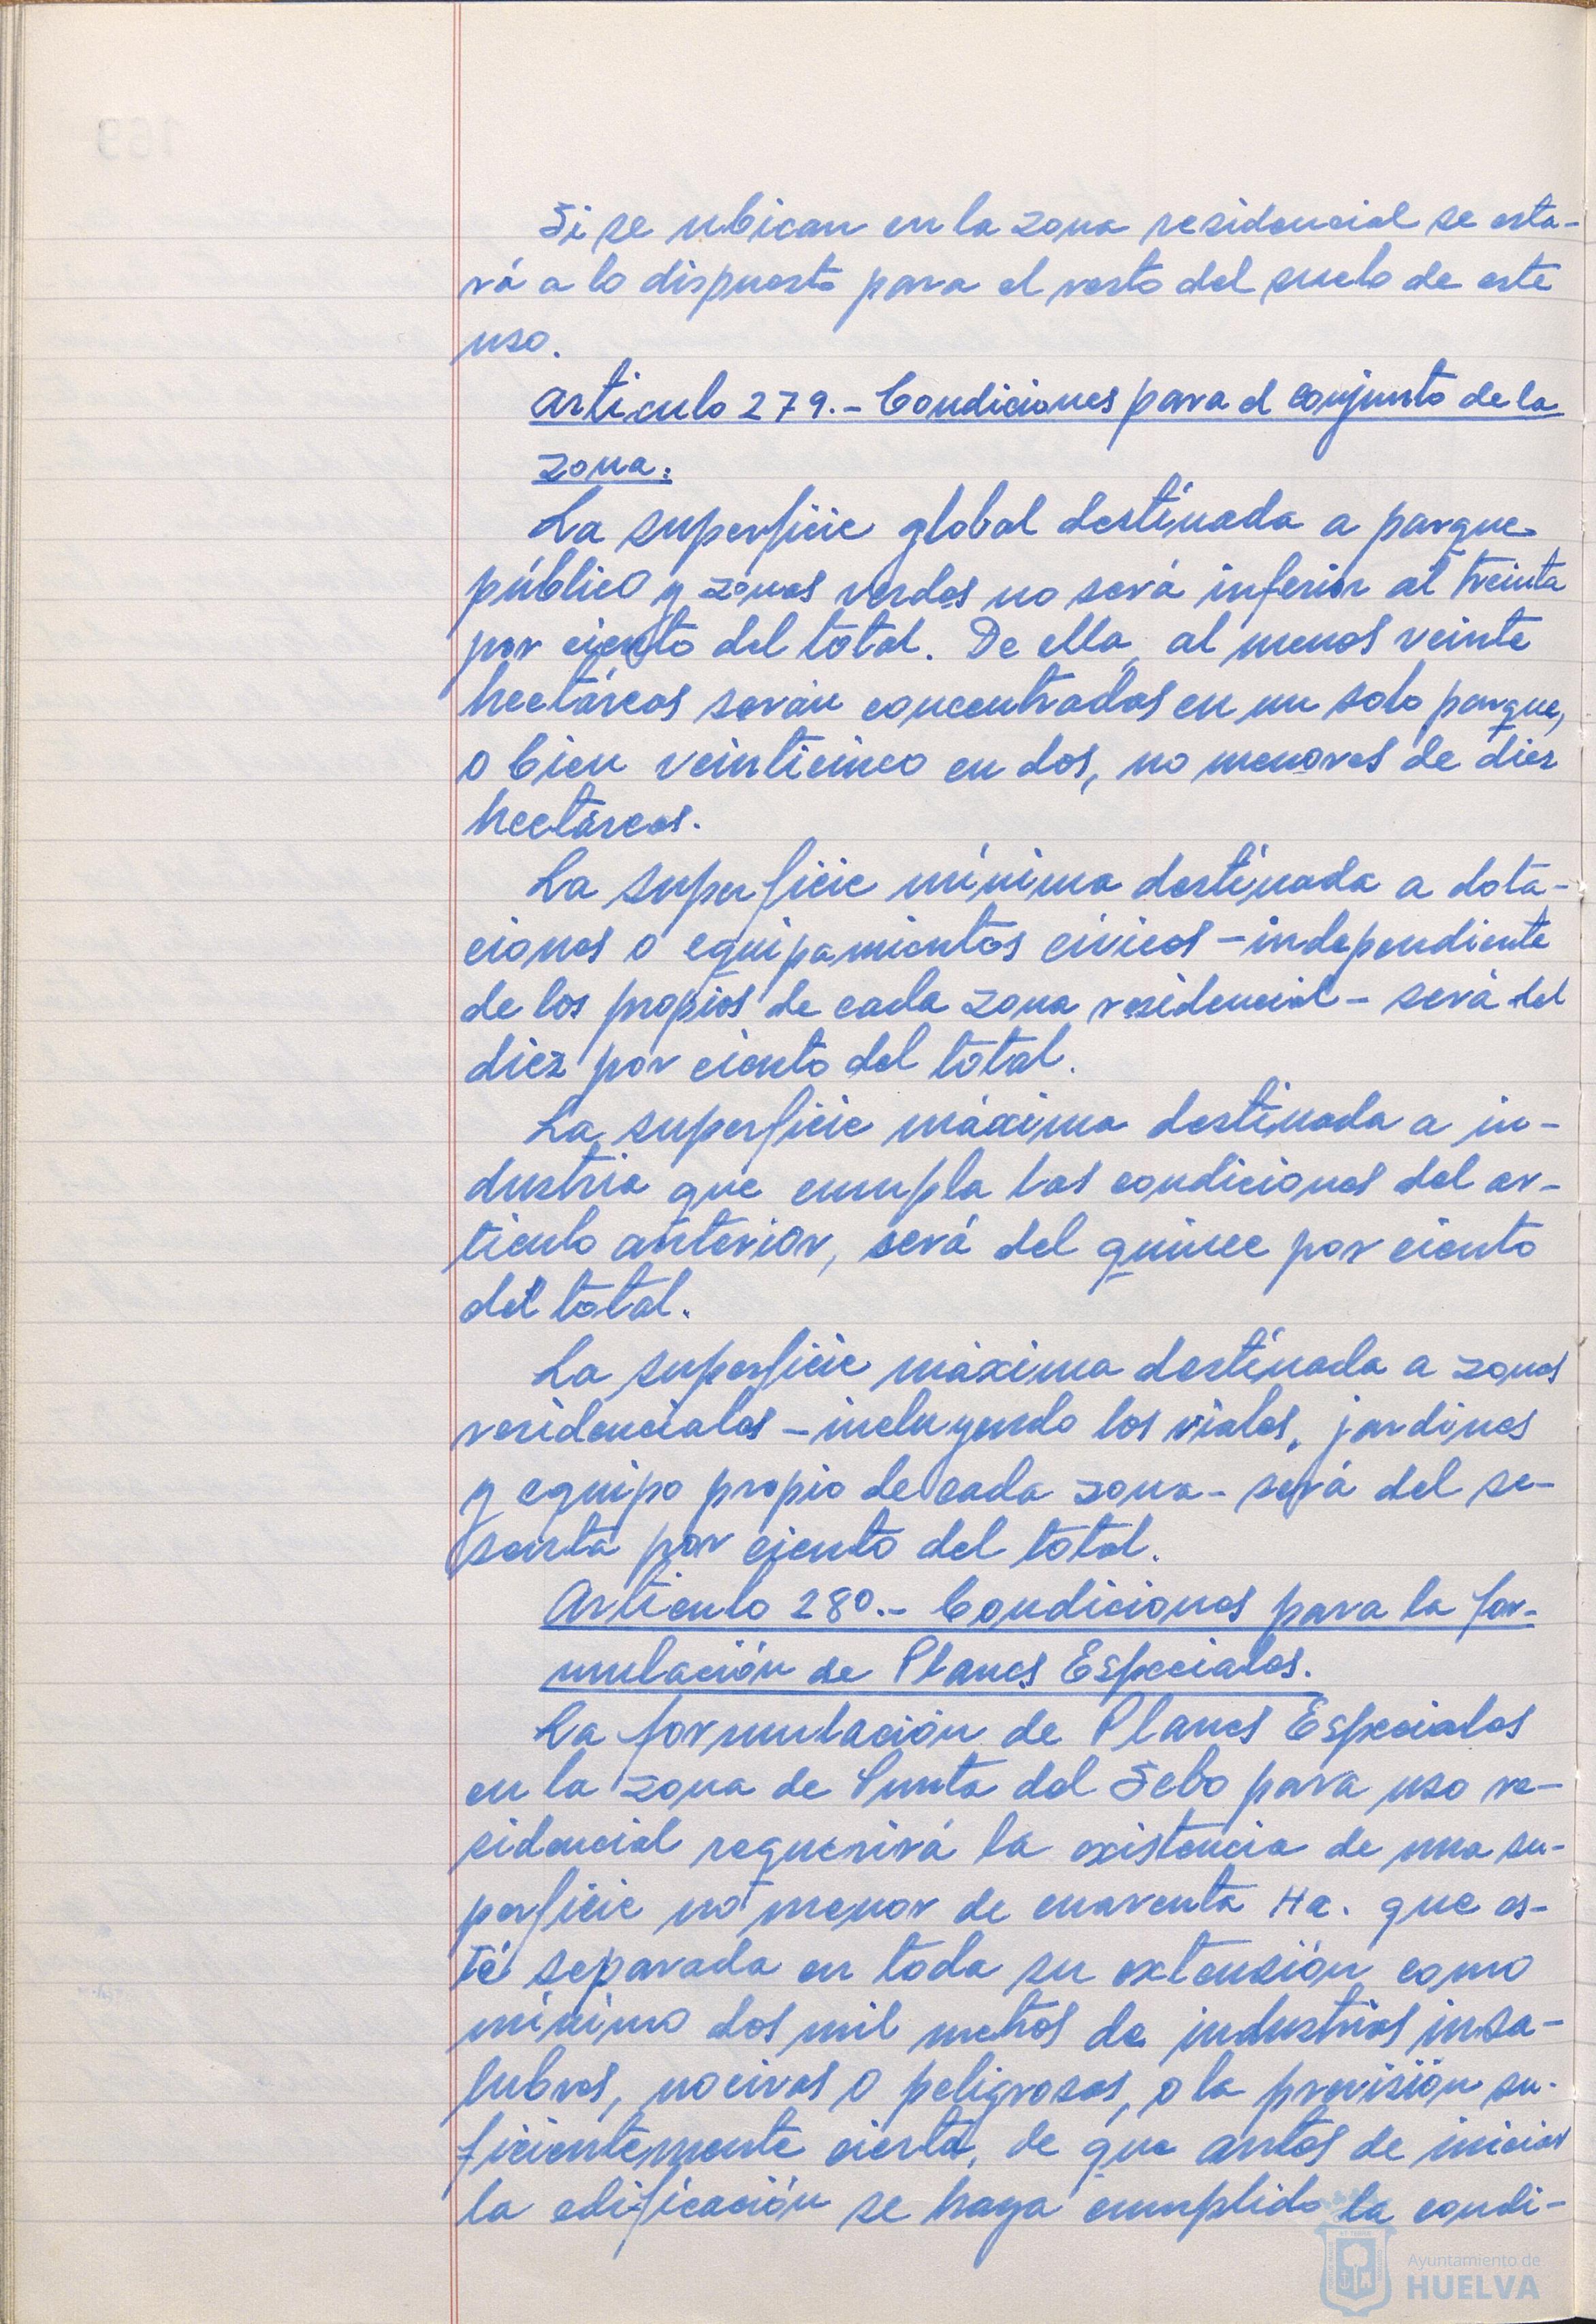 Si se ubican en la zona residencial se esta-
rá a lo dispuesto para el resto del suelo de este
uso.
Artículo 279.- Condiciones para el conjunto de la
zona.
La superficie global destinada a parque
público y zonas verdes no será inferior al treinta
por ciento del total. De ella, al menos veinte
hectáreas serán concentradas en un solo parque,
o bien veinticinco en dos, no menores de diez
hectáreas.
La superficie mínima destinada a dota-
ciones o equipamientos cívicos - independiente
de los propios de cada zona residencial - será del
diez por ciento del total.
La superficie máxima destinada a in-
dustria que cumpla las condiciones del ar-
tículo anterior, será del quince por ciento
del total.
La superficie máxima destinada a zonas
residenciales - incluyendo los viales, jardines
y equipo propio de cada zona - será del se-
senta por ciento del total.
Artículo 280.- Condiciones para la for-
mulación de Planes Especiales.
La formulación de Planes Especiales
en la zona de Punta del Sebo para uso re-
sidencial requerirá la existencia de una su-
perficie no menor de cuarenta Ha. que es-
té separada en toda su extensión como
mínimo dos mil metros de industrias insa-
lubres, nocivas o peligrosas, o la previsión su-
ficientemente cierta, de que antes de iniciar
la edificación se haya cumplido la condi-
Ayuntamiento de
HUELVA